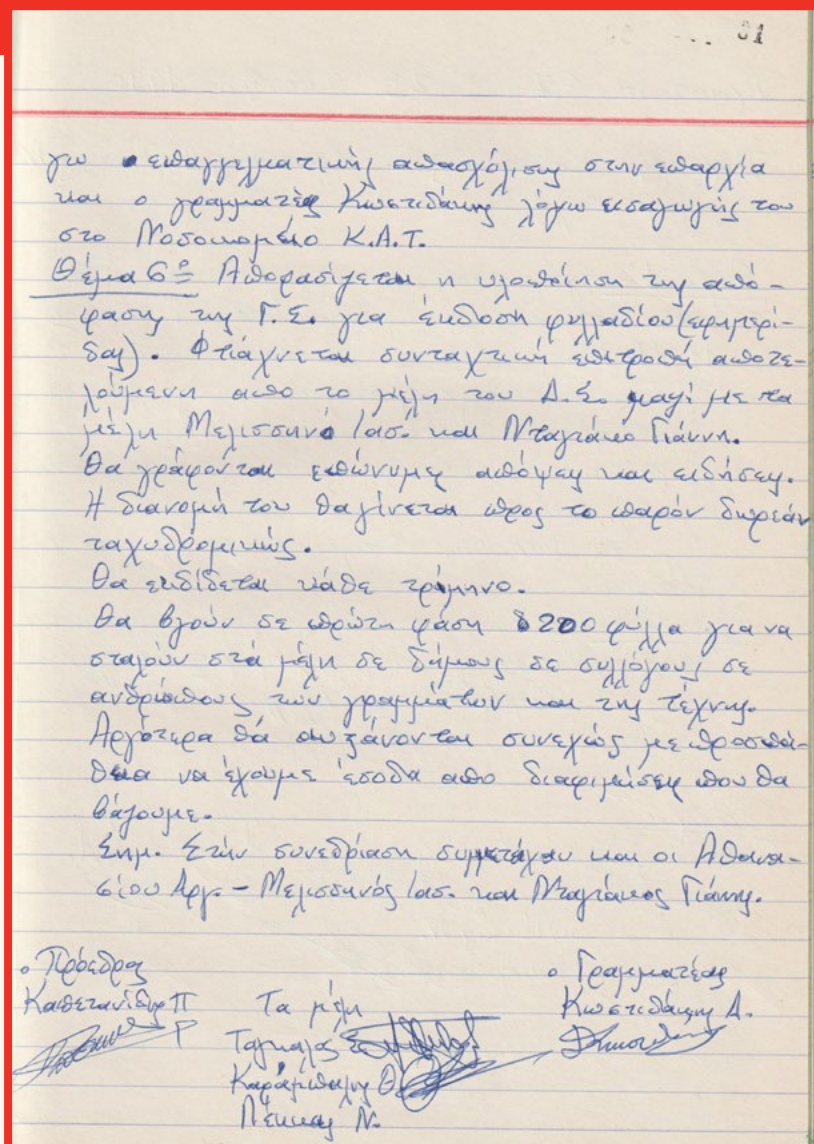 61
γω επαγγελματικής απασχόλισης στην επαρχία
και ο γραμματέας Κωστιδάκης λόγω εισαγωγής του
στο Νοσοκομείο Κ.Α.Τ.
Θέμα 6º Αποφασίζεται η υλοποίηση της από-
φασης της Γ.Σ. για έκδοση φυλλαδίου (εφημερί-
δας). Φτιάχνεται συνταχτική επιτροπή αποτε-
λούμενη απο το μέλη του Δ.Σ. μαζί με τα
μέλη Μελισσηνό Ιασ. και Νταγιάκο Γιάννη.
Θα γράφονται επώνυμες απόψεις και ειδήσεις.
Η διανομή του θα γίνεται προς το παρόν δωρεάν
ταχυδρομικώς.
Θα εκδίδεται κάθε τρίμηνο.
Θα βγούν σε πρώτη φάση 200 φύλλα για να
σταλούν στά μέλη σε δήμους σε συλλόγους σε
ανθρώπους των γραμμάτων και της τέχνης.
Αργότερα θά αυξάνονται συνεχώς με προσπά-
θεια να έχουμε έσοδα απο διαφημίσεις που θα
βάζουμε.
Σημ. Στήν συνεδρίαση συμμετείχαν και οι Αθανα-
σίου Αργ. - Μελισσηνός Ιασ. και Νταγιάκος Γιάννης.
ο Πρόεδρος
ο Γραμματέας
Καπετανίδης Π
Τα μέλη
Κωστιδάκης Δ.
Καράμπαλης Θ.
Πέκκας Ν.